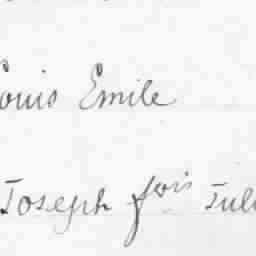 Louis Emile
Joseph fois Jul